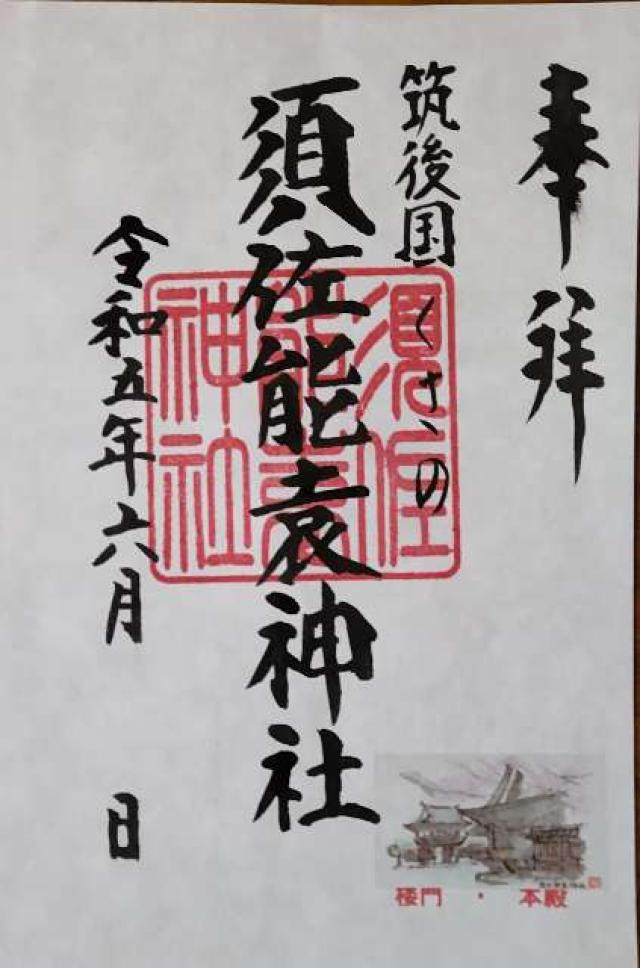 奉拝
筑後国くさの
須佐能袁神社
令和五年六月 日
須佐
能袁
神社
楼門 ・ 本殿